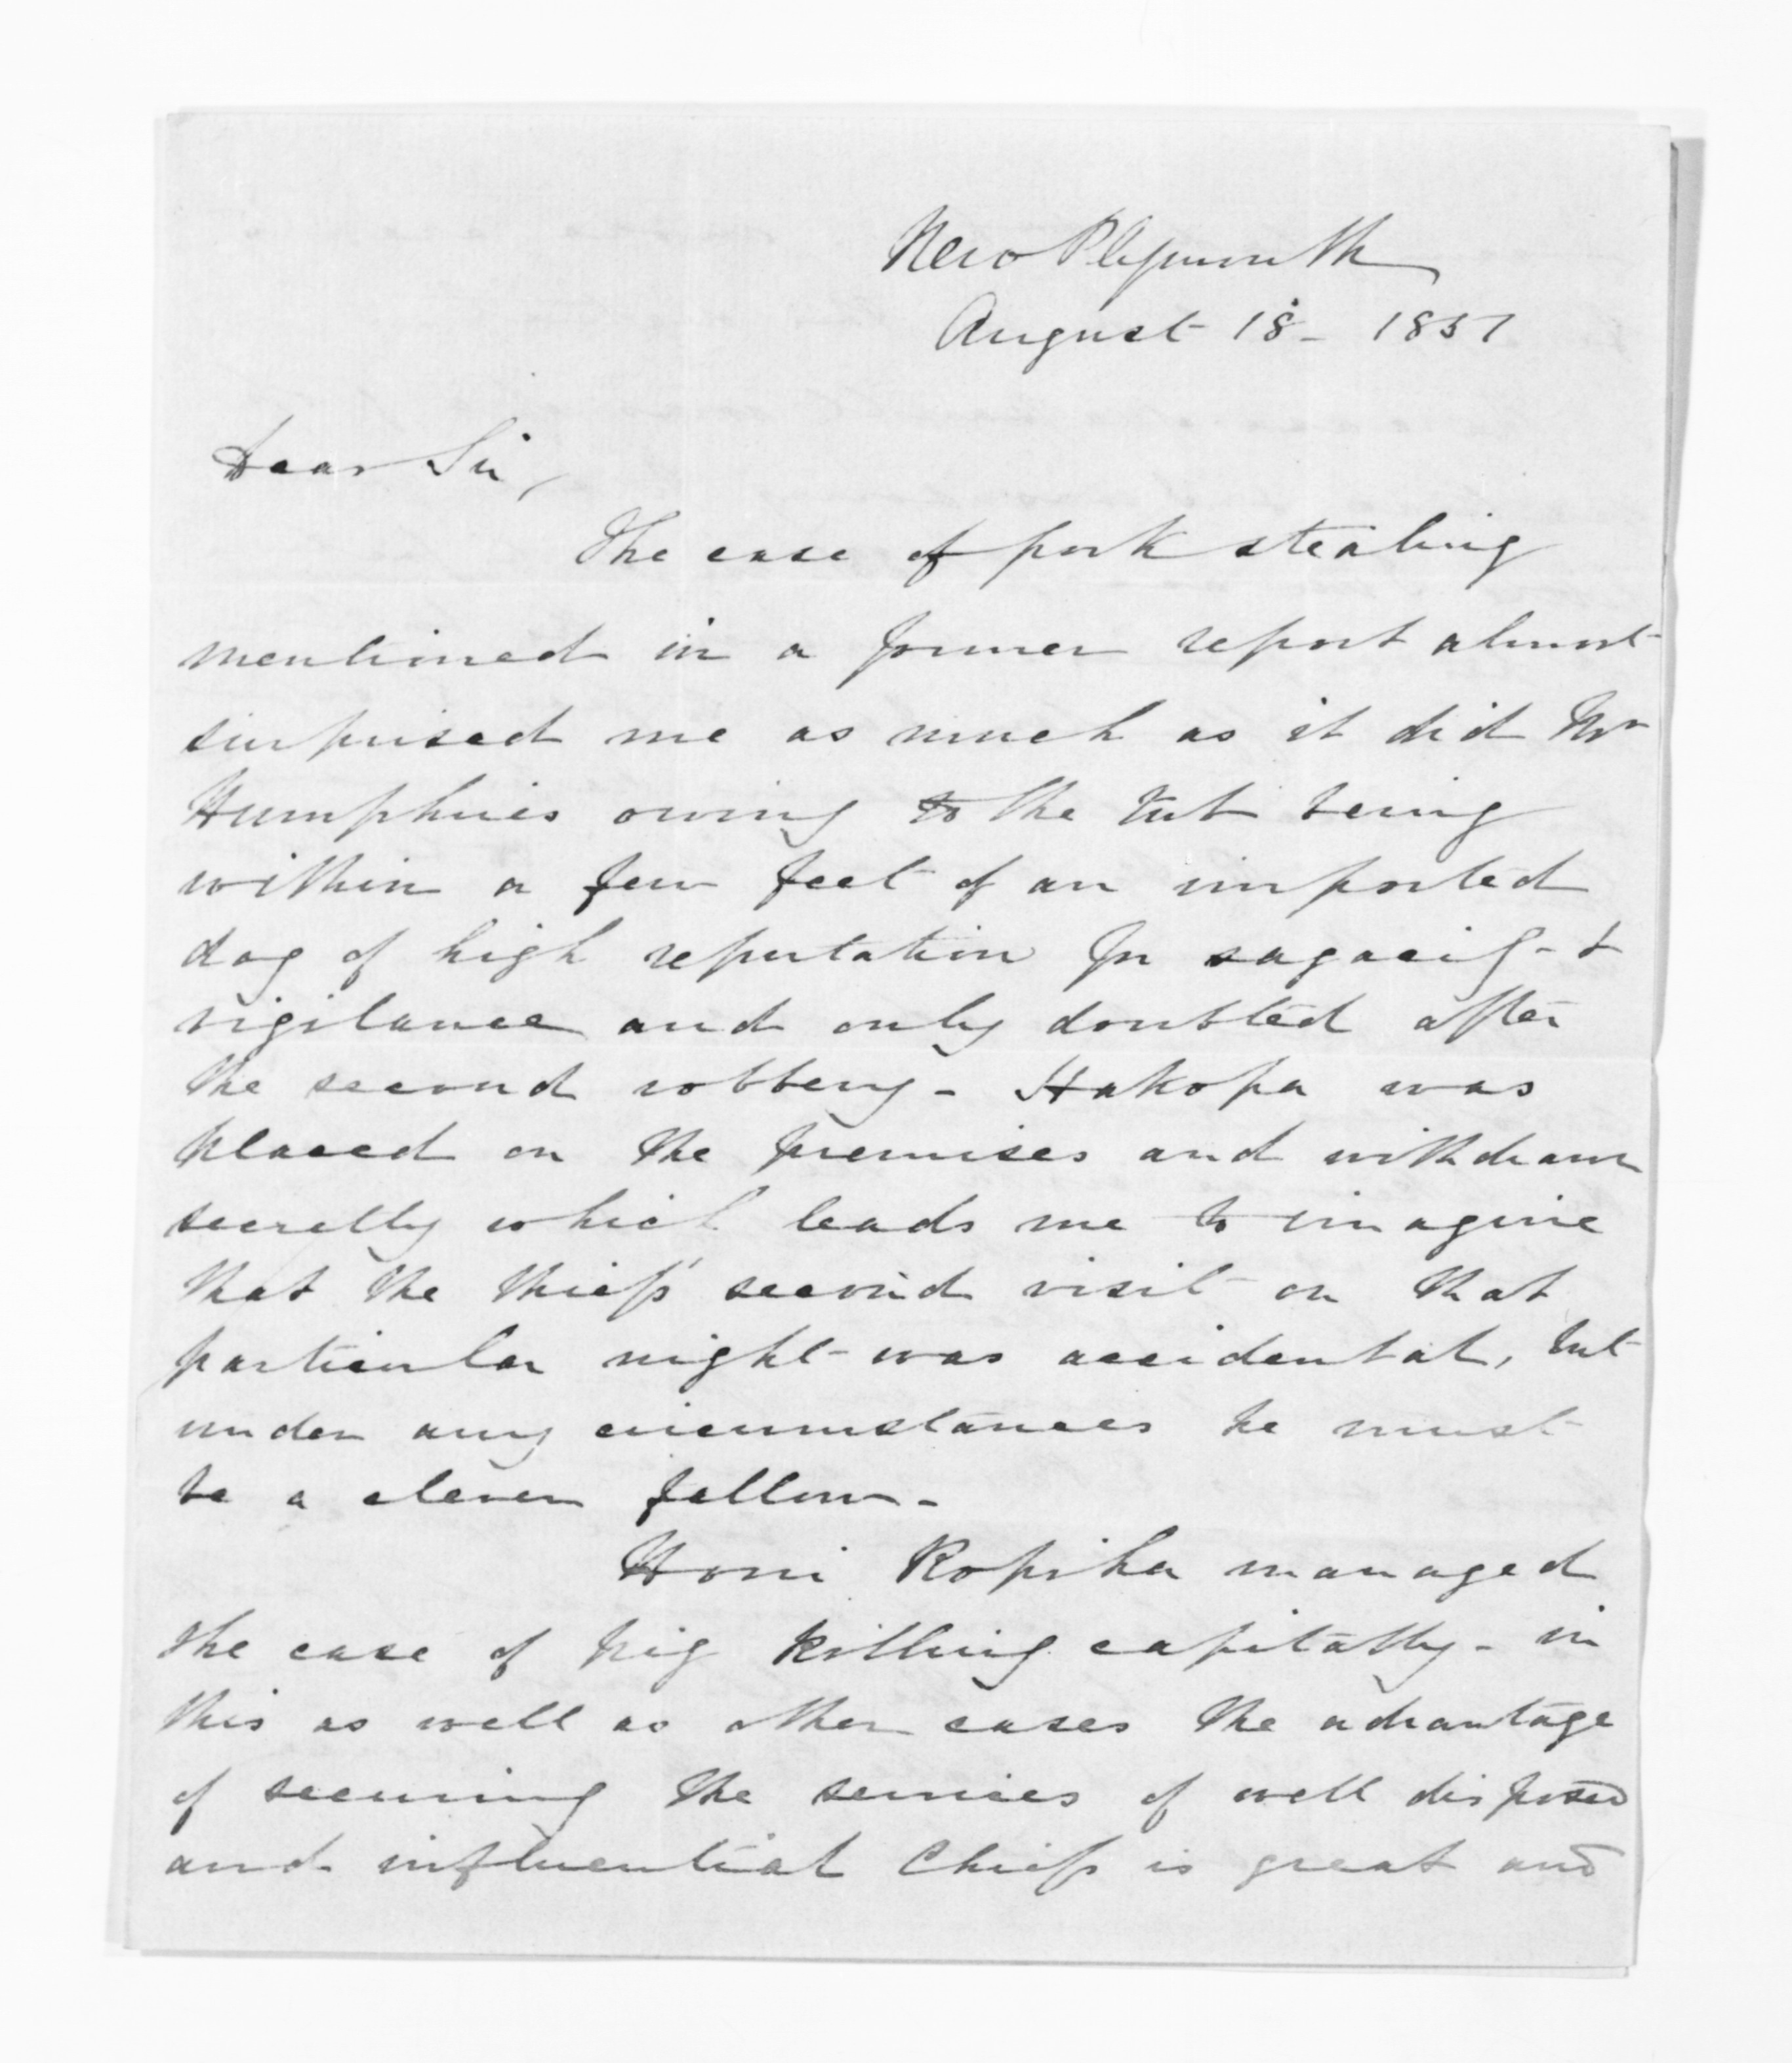 New Plymouth
August 18 - 1851
Dear Sir,
The case of pork stealing
mentioned in a former report almost
surprised me as much as it did Mr
Humphries owing to the tub being
within a few feet of an imported
dog of high reputation for sagacity &
vigilance and only doubted after
the second robbery - Hakopa was
placed on the premises and withdrawn
secretly which leads me to imagine
that the thief's second visit on that
particular night was accidental, but
under any circumstances he must
be a clever fellow -
Honi Ropiha managed
the case of pig killing capitally - in
this as well as other cases the advantage
of securing the services of well disposed
and influential Chiefs is great and